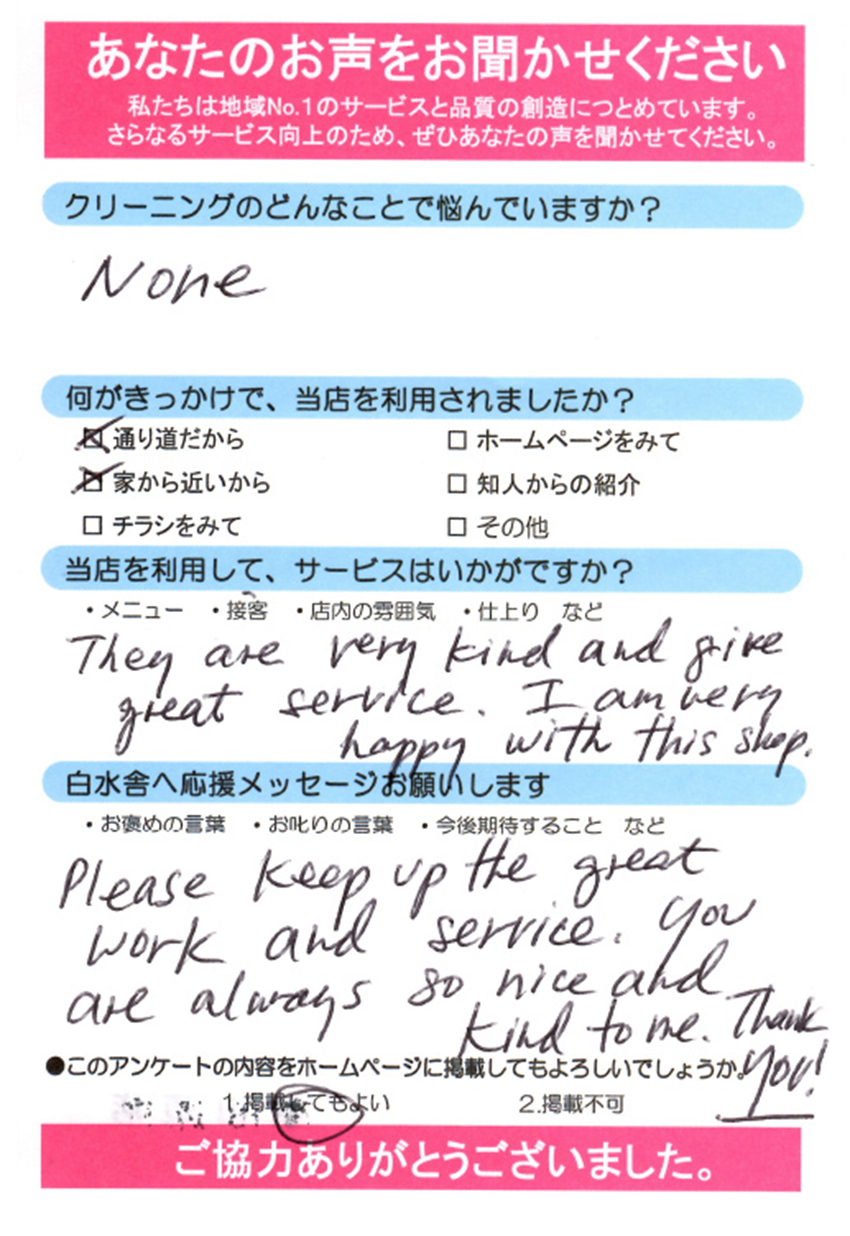 あなたのお声をお聞かせください
私たちは地域No.1のサービスと品質の創造につとめています。
さらなるサービス向上のため、ぜひあなたの声を聞かせてください。
クリーニングのどんなことで悩んでいますか？
None
何がきっかけで、当店を利用されましたか？
通り道だから ホームページをみて
家から近いから 知人からの紹介
チラシをみて その他
当店を利用して、サービスはいかがですか？
・メニュー ・接客 ・店内の雰囲気 ・仕上り など
They are very kind and give
great service. I am very
happy with this shop.
白水舎へ応援メッセージお願いします
・お褒めの言葉 ・お叱りの言葉 ・今後期待すること など
Please keep up the great
work and service. You
are always so nice and
kind to me. Thank
you!
●このアンケートの内容をホームページに掲載してもよろしいでしょうか。
1.掲載してもよい 2.掲載不可
ご協力ありがとうございました。